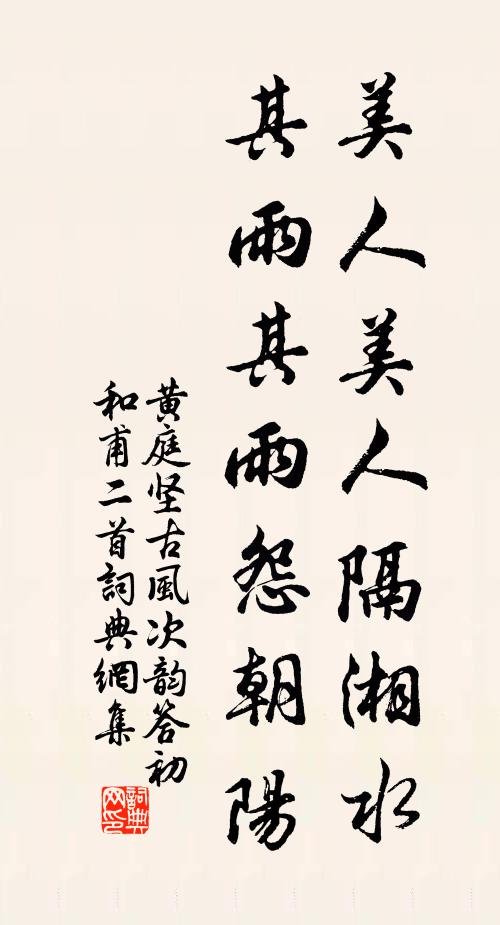 美人美人隔湘水
其雨其雨怨朝陽
黄庭坚古風次韵答初
和甫二首詞典網集
詞典
网印